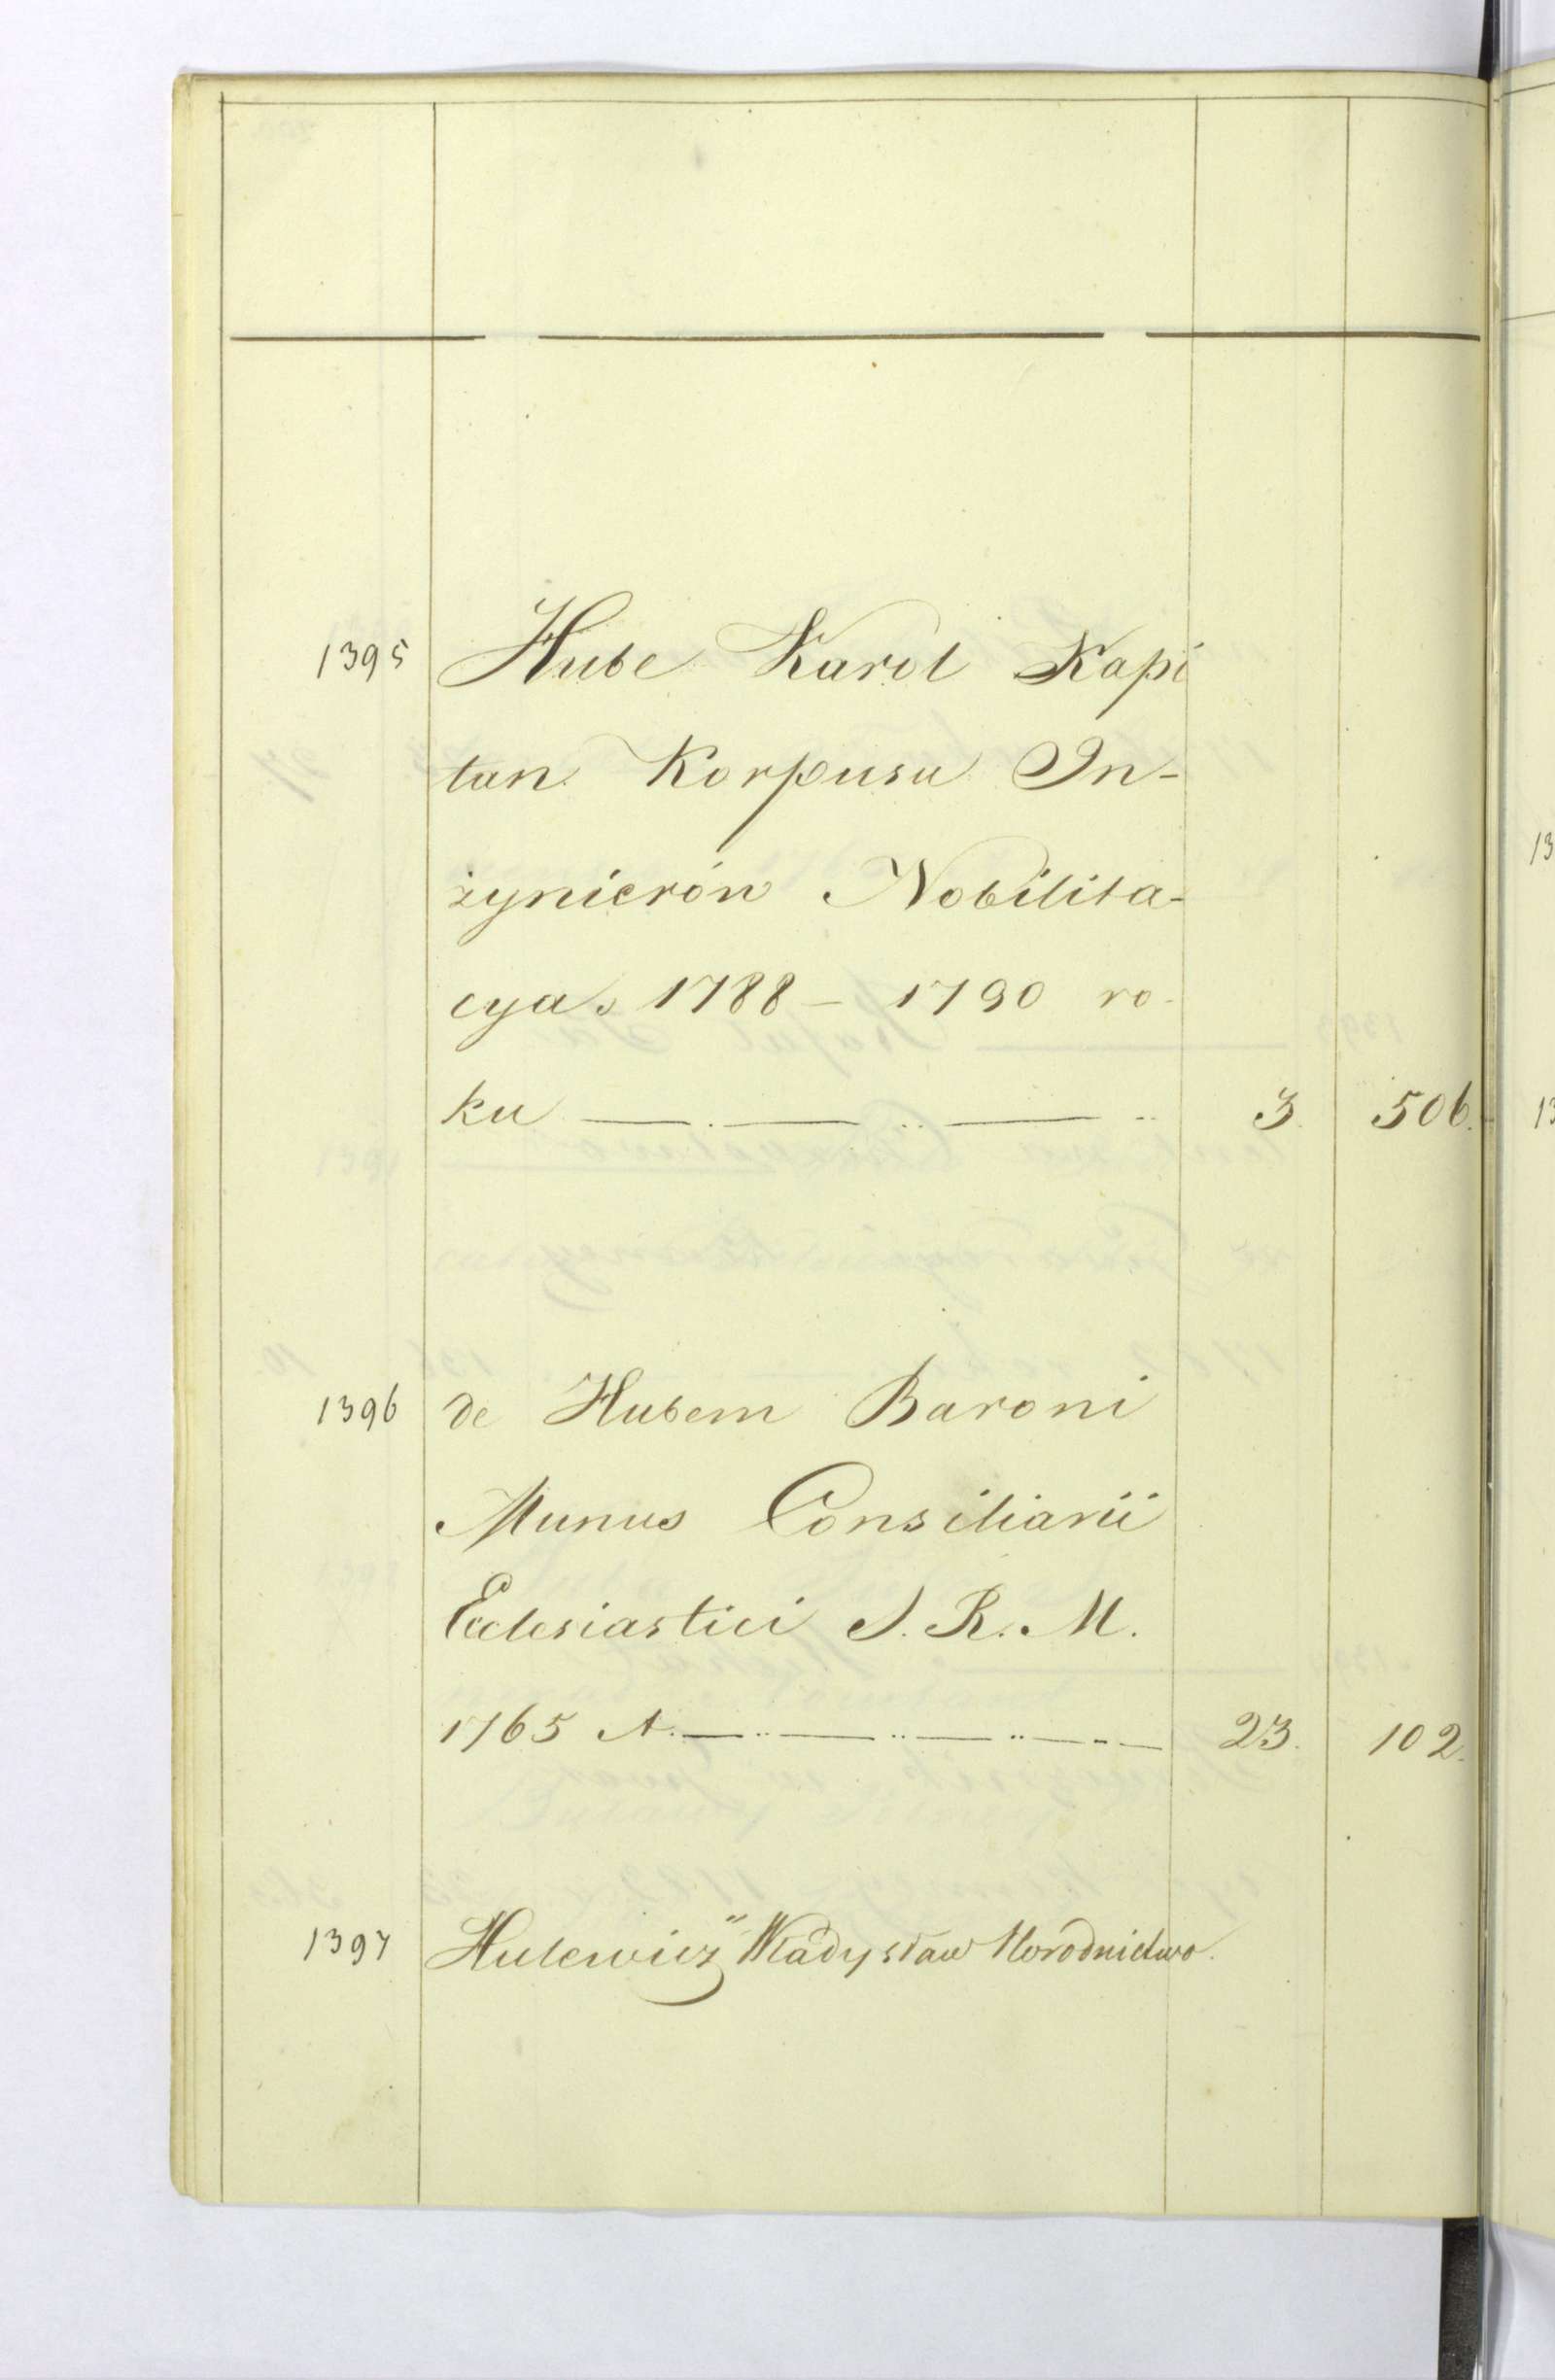 1395 Hube Karol Kapi
tan Korpusu In-
żynierów Nobilita-
cya 1788 - 1790 ro-
ku 3. 506.
1396 de Hubem Baroni
Munus Consiliarii
Ecclesiastici S. R. M.
1765 A. 23. 102.
1397 Hulewicz Władysław Horodnictwo.